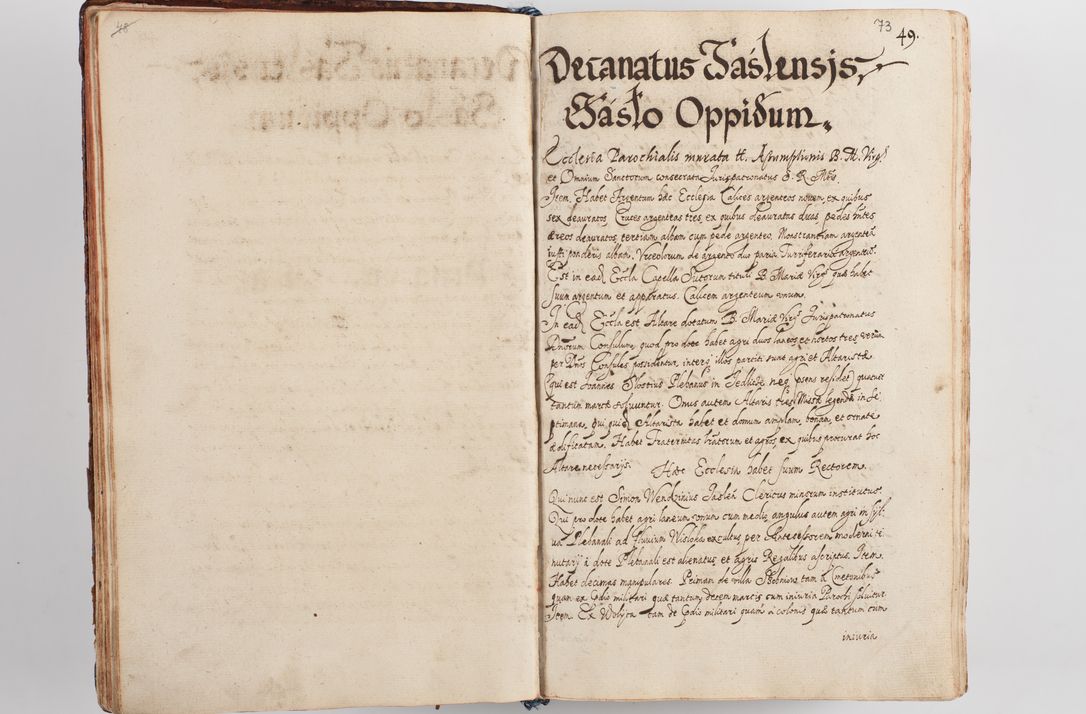 48
73
49.
Decanatus Jáslensis,
Jásło Oppidum.
Ecclesia Parochialis murata tt. Assumptionis B. M. Virg.
et Omnium Sanctorum consecrata Jurispatronatus S. R. Mtis.
Item. Habet Argentum hæc Ecclesia Calices argenteos novem, ex quibus
sex deauratos, Cruces argenteas tres, ex quibus deauratas duas, pedes
æreos deauratos, tertiam albam cum pede argenteo, Monstrantiam argenteã
iusti ponderis albam. Vrceolorum de argento duo paria Turriferariũ argenteũ
Est in ead Eccla Capella Sutorum tituli B. Mariæ Virg. quæ habet
suum argentum et apparatus. Calicem argenteum vnum.
In ead Eccla est Altare dotatum B. Mariæ Virg. Jurispatronatus
Dnorum Consulum, quod pro dote habet agri duos laneos, et hortos tres, verũ
per Dnos Consules possidentur, interq illos partiti sunt agri, et Altaristæ
(qui est Joannes Slostius Plebanus in Jedlicze neq psens residet) quatuor
tantum marcæ soluuntur. Onus autem Altaris tres Missæ legendæ in se
ptimana, qui quid Altarista habet et domum amplam, bonam, et ornate
ædificatam. Habet Fraternitas hratorum et agnos, ex quibus procurat hoc
Altare necessarijs. Hæc Ecclesia habet suum Rectorem.
Qui nunc est Simon Wendzinius Jasleñ Clericus minorum institutus.
Qui pro dote habet agri laneum vnum cum medio, angulus autem agri in syl-
ua Plebanali ad fluuium Wisloka excultus per Antecessorem moderni te
nutarij à dote Plebanali est alienatus et agris Regalibus ascriptus. Item
Habet decimas manipulares. Primam de villa Sobniow, tam à Cmetonibus
quam ex Pdio militari quæ tantum decem marcis cum iniuria Parochi soluitur.
Item Ex Wolyca tam de Pdio militari quam à colonis quæ tantum cum
iniuria